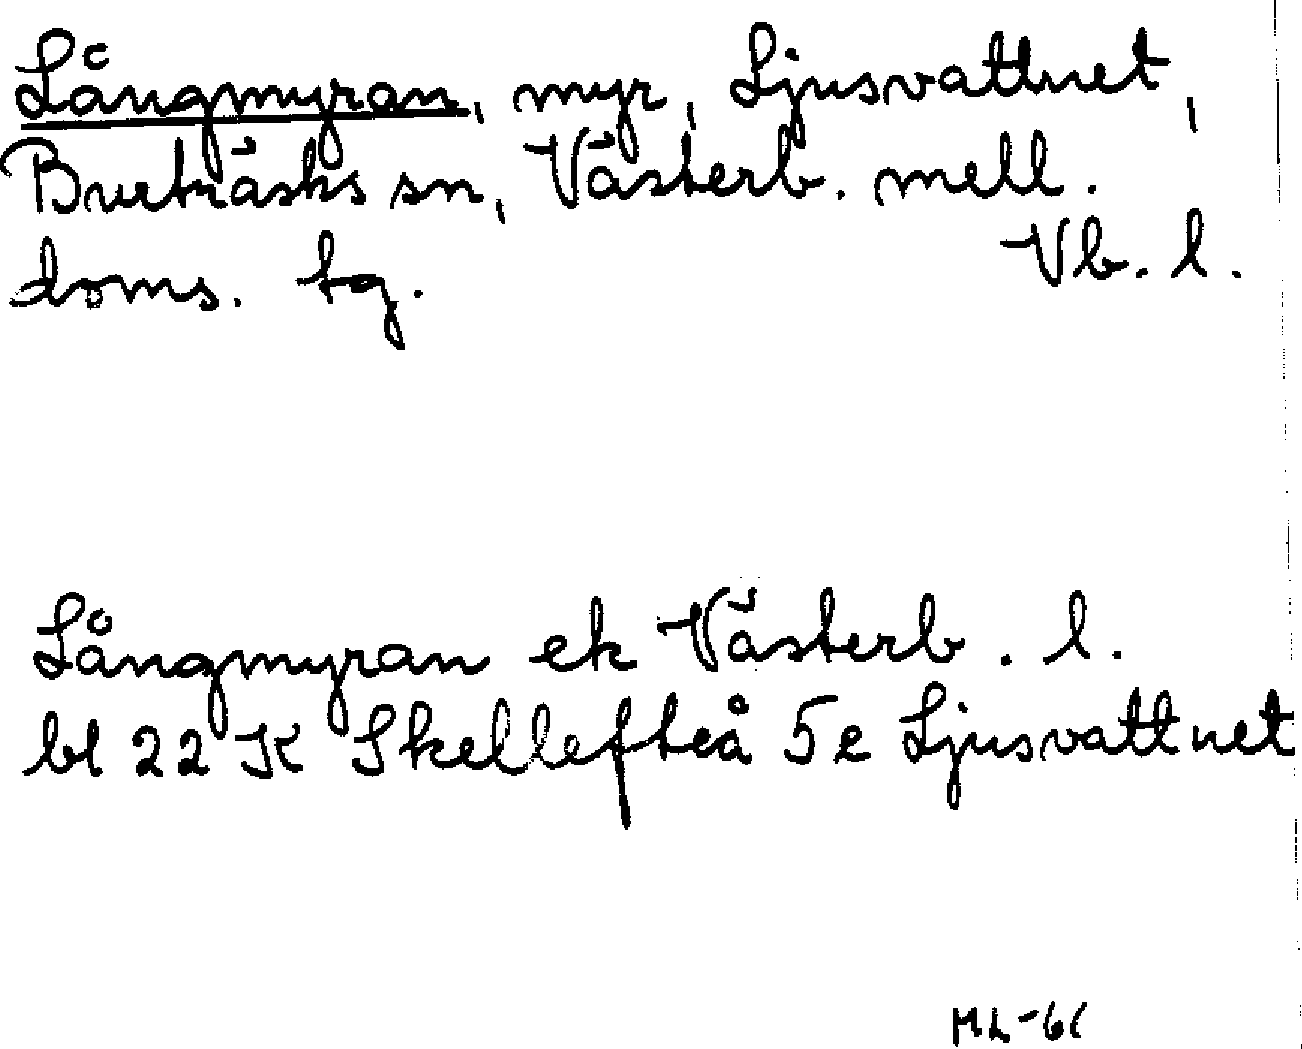 Långmyran, myr, Ljusvattnet,
Burträsks sn, Västerb. mell.
doms. tg. Vb. l.
Långmyran ek Västerb. l.
bl 22 K Skellefteå 5e Ljusvattnet